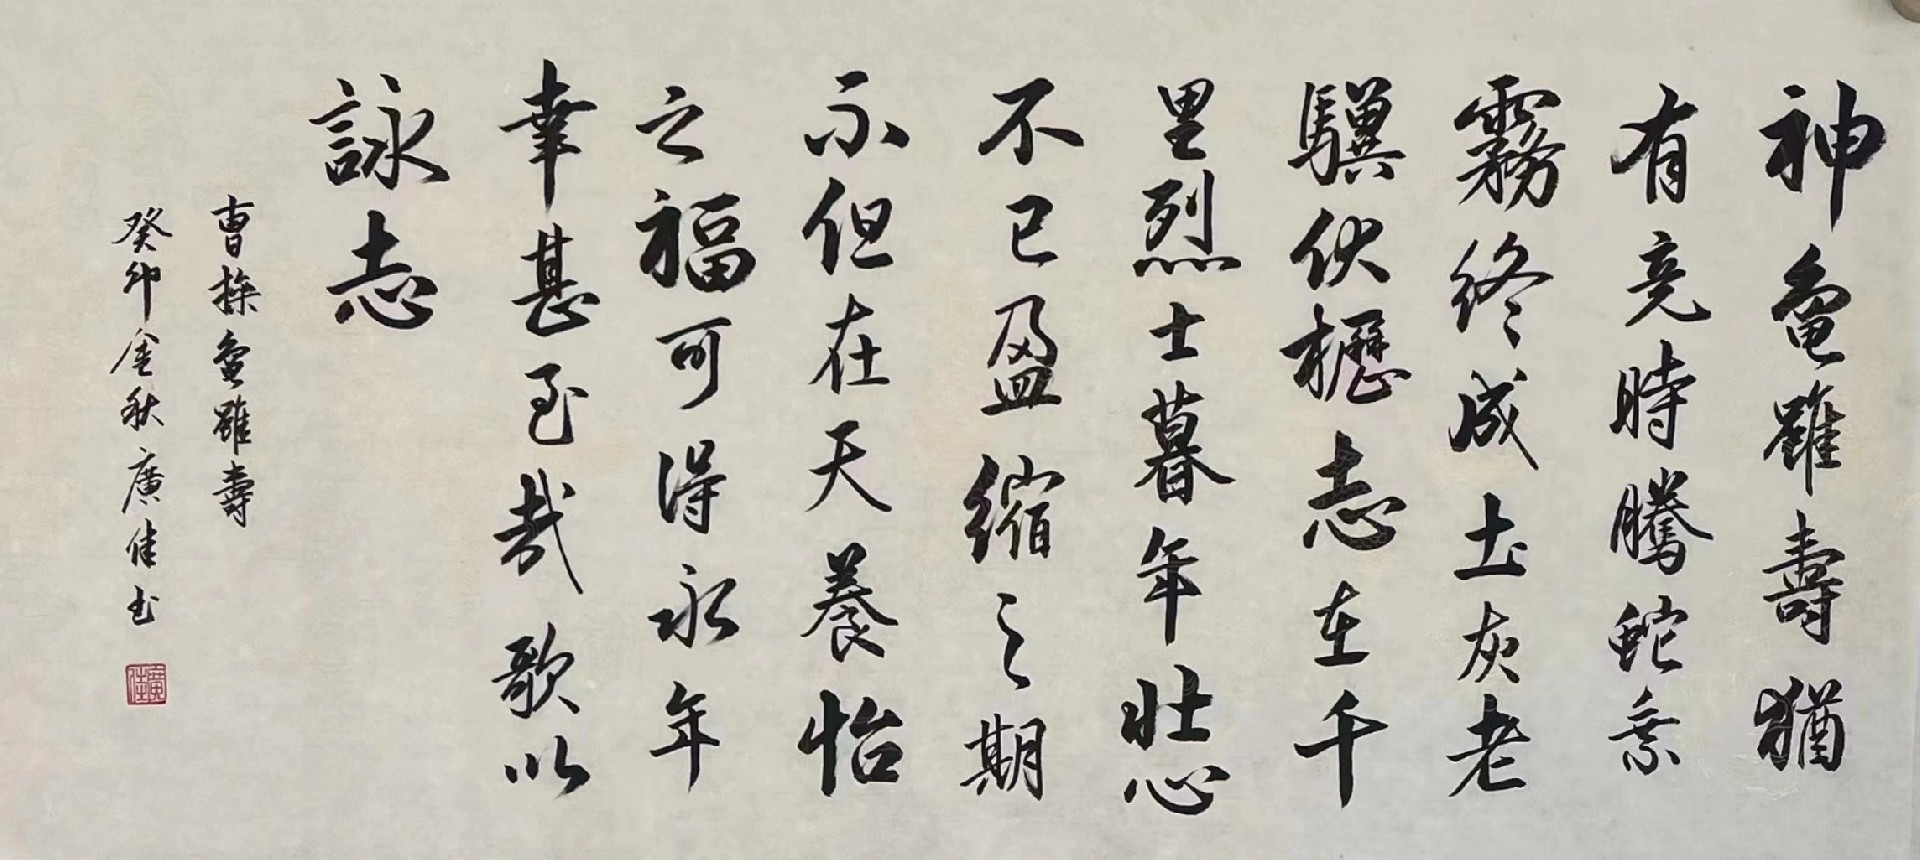 神龜雖壽猶
有竟時騰蛇乘
霧終成土灰老
驥伏櫪志在千
里烈士暮年壯心
不已盈縮之期
不但在天養怡
之福可得永年
幸甚至哉歌以
詠志
曹操龜雖壽
癸卯金秋廣佳书
廣佳